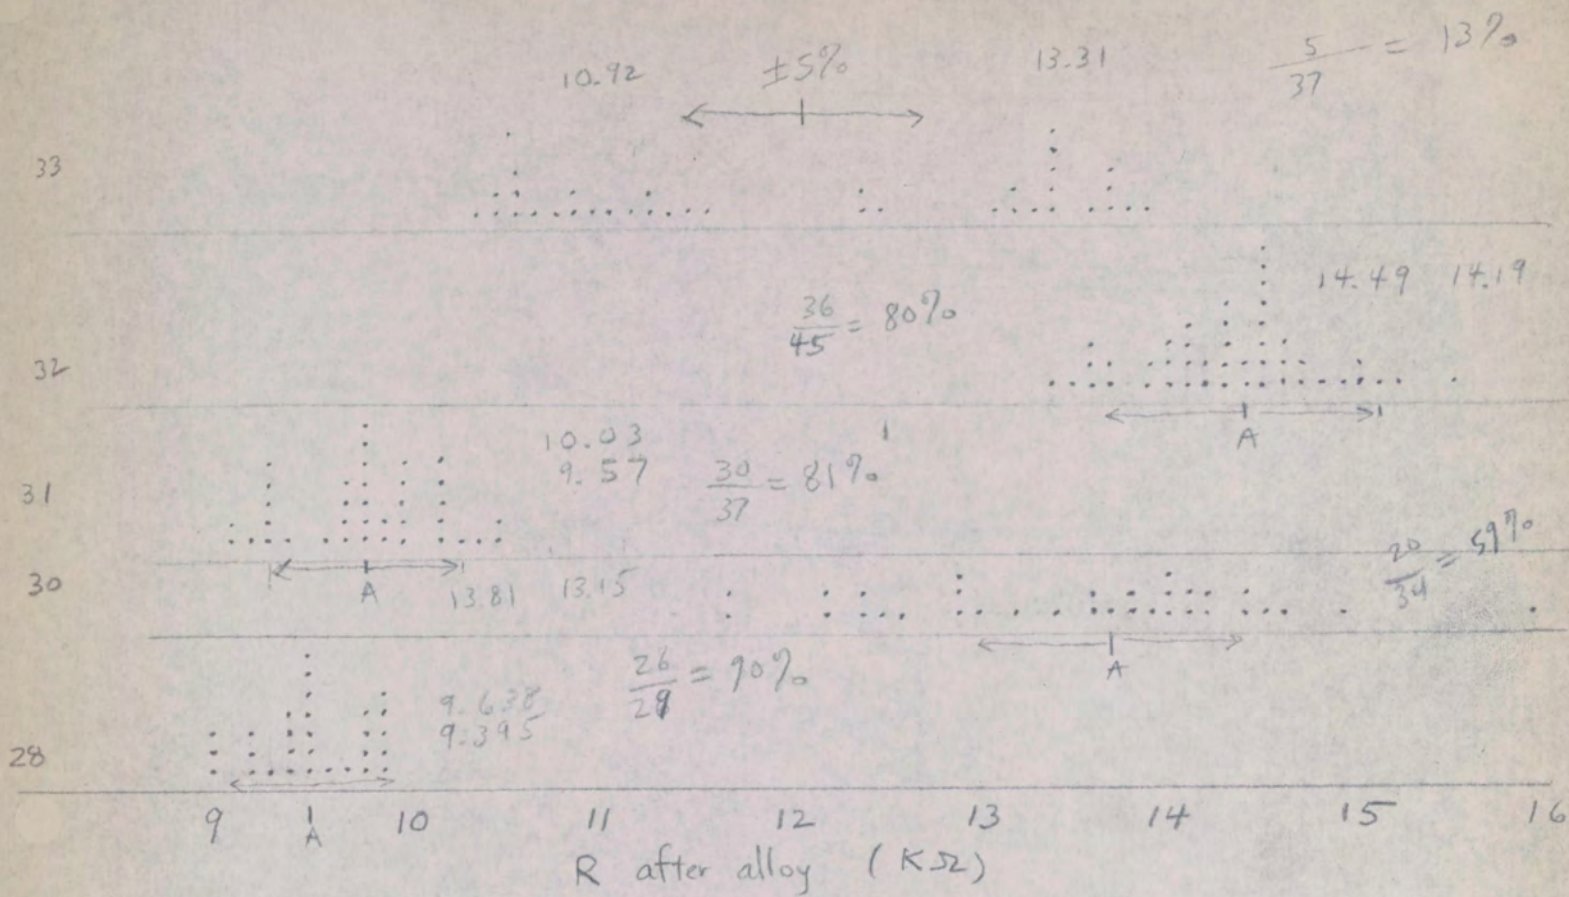 10.92 ±5% 13.31 5/37 = 13%
33
36/45 = 80% 14.49 14.19
32
A
10.03
9.57 30/37 = 81%
31
20/34 = 59%
30
A 13.81 13.15
A
26/29 = 90%
9.638
9.395
28
9 A 10 11 12 13 14 15 16
R after alloy (KΩ)